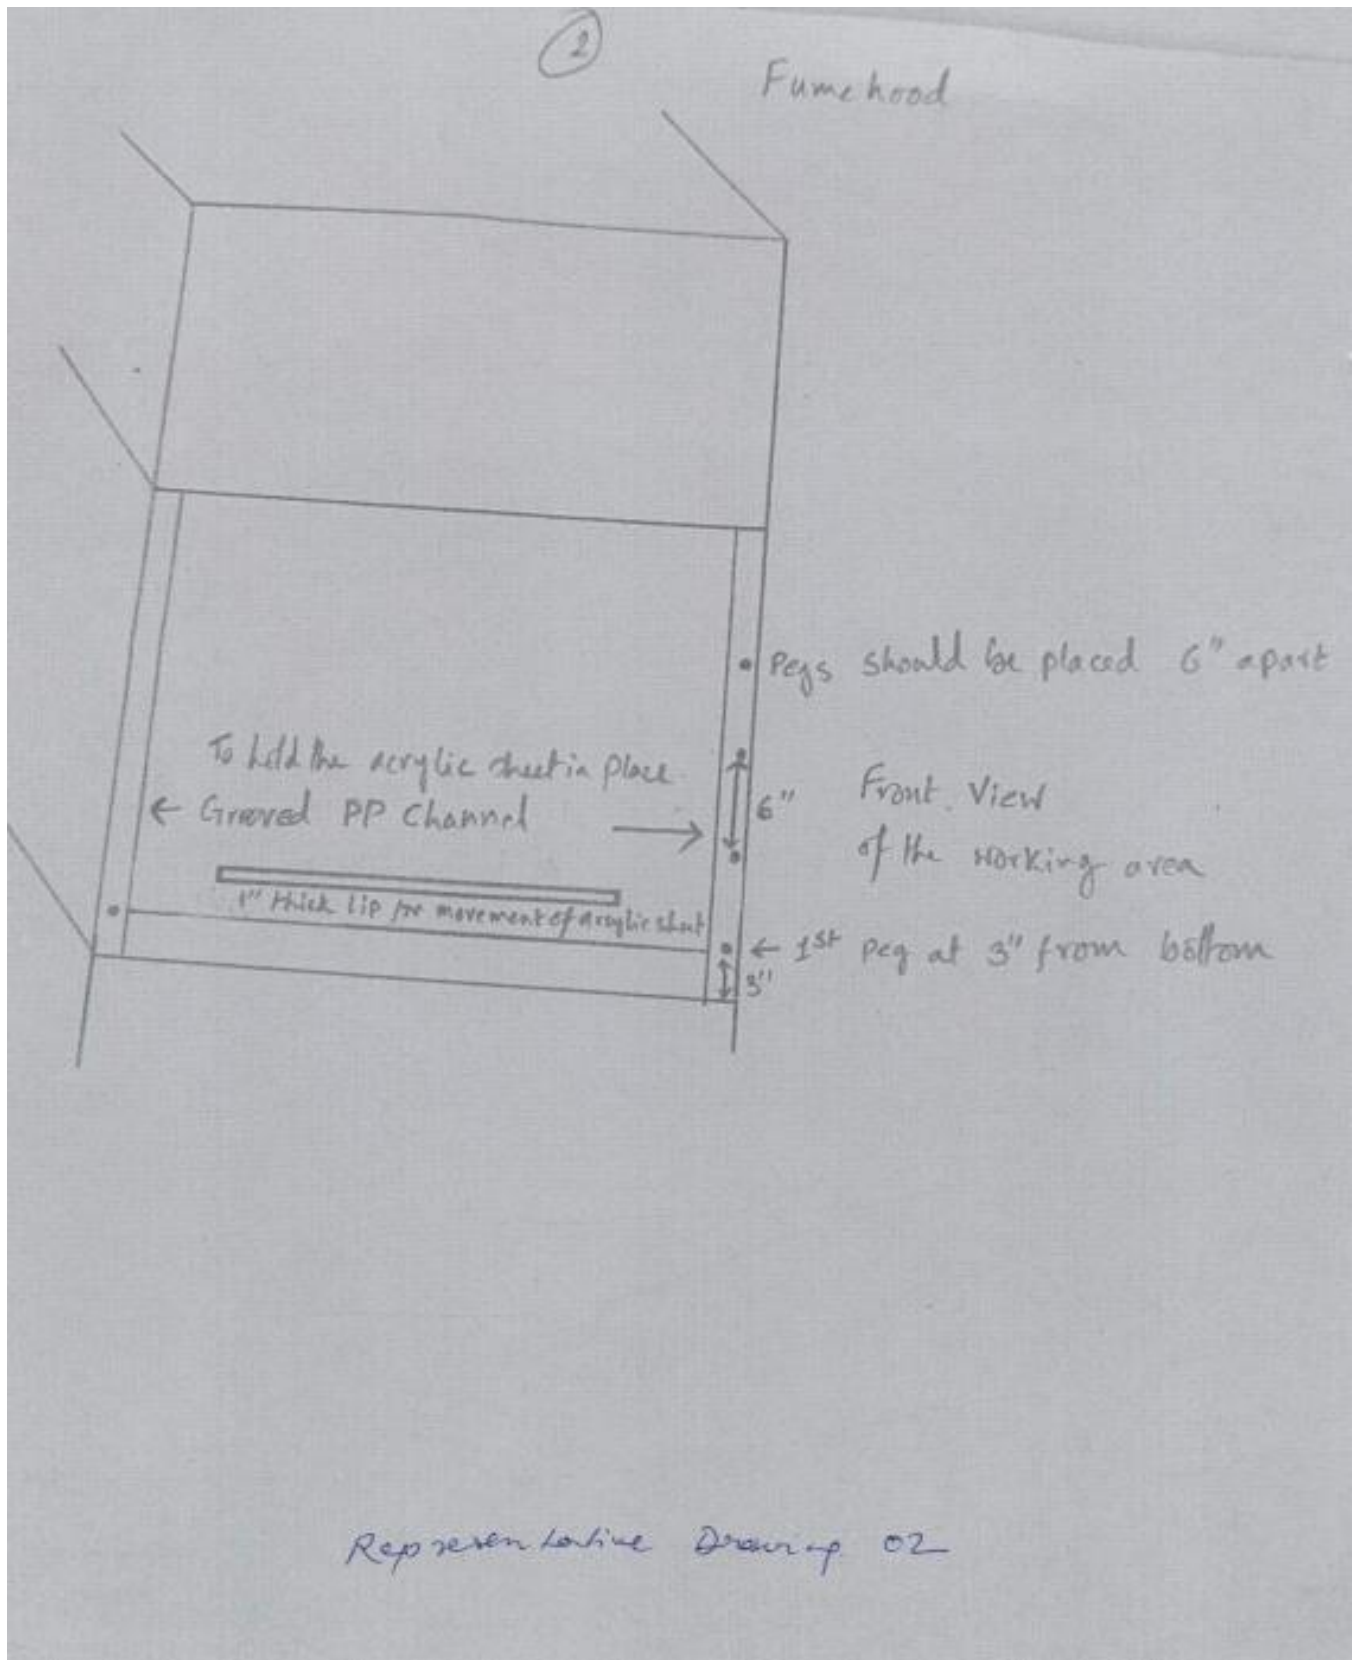 2
Fumehood
Pegs should be placed 6" apart
To hold the acrylic sheet in place
← Grooved PP Channel →
6"
Front View
of the working area
1" thick lip for movement of acrylic sheet
← 1st peg at 3" from bottom
3"
Representative Drawing 02